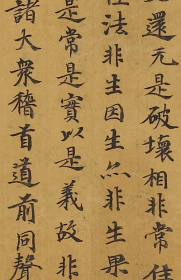 還元是破壞相非常住
法非生因生亦非生果
是常是實以是義故非
諸大衆稽首道前同聲